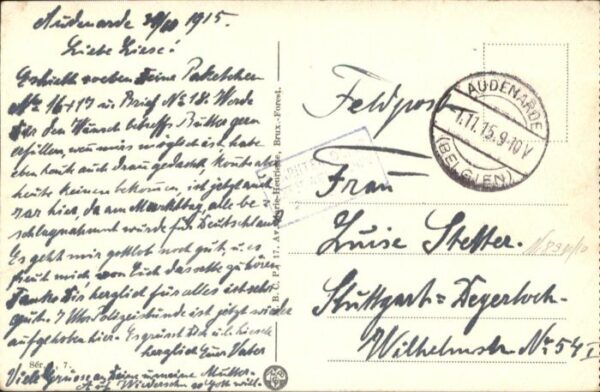 Audenarde 30/10 1915.
Liebe Liese!
Erhielt soeben Deine Paketchen
No 16+17 u. Brief No 18. Werde
Dir den Wunsch betreffs Butter gern
erfüllen, wenn mirs möglich ist, habe
eben heute auch dran gedacht, konnte aber
heute keinen bekommen, ist jetzt auch
rar hier, da am Markttag alle be-
schlagnahmt wurde für Deutschland
Es geht mir gottlob noch gut, u. es
freut mich, von Euch dasselbe zu hören
Danke Dir herzlich für alles ist sehr
gut. 7 Uhr Polizeistunde ist jetzt wieder
aufgehoben hier. Es grüsst Dich u. Liesele
herzlich Euer Vater
Viele Grüsse an Deine u. meine Mutter.
Auf Wiedersehn so Gott will.
Sér. 7.
B. C. P. 17, Av. Marie-Henriette, Brux.-Forest.
Feldpost
AUDENARDE
1.11.15.9-10V
(BELGIEN)
Frau
Luise Stetter.
Stuttgart=Degerloch-
Wilhelmstr No 54 I